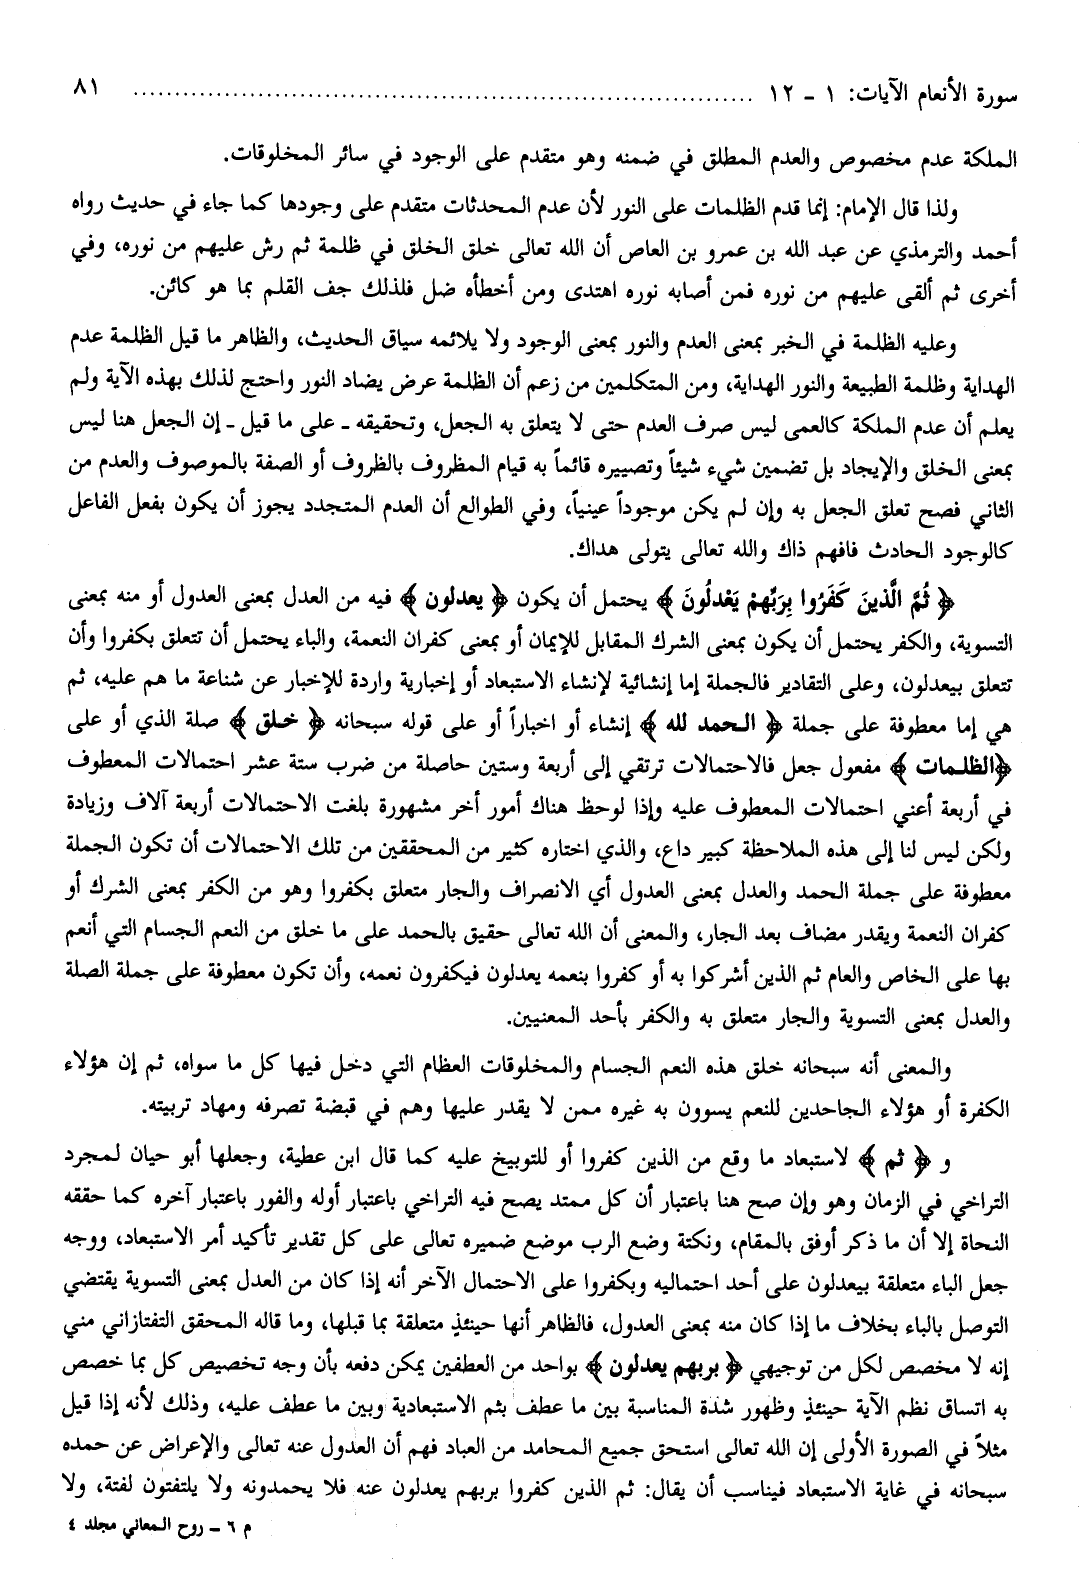 سورة الأنعام الآيات: ١ ـ ١٢ ........................................................................... ٨١
الملكة عدم مخصوص والعدم المطلق في ضمنه وهو متقدم على الوجود في سائر المخلوقات.
ولذا قال الإمام: إنما قدم الظلمات على النور لأن عدم المحدثات متقدم على وجودها كما جاء في حديث رواه
أحمد والترمذي عن عبد الله بن عمرو بن العاص أن الله تعالى خلق الخلق في ظلمة ثم رش عليهم من نوره، وفي
أخرى ثم ألقى عليهم من نوره فمن أصابه نوره اهتدى ومن أخطأه ضل فلذلك جف القلم بما هو كائن.
وعليه الظلمة في الخبر بمعنى العدم والنور بمعنى الوجود ولا يلائمه سياق الحديث، والظاهر ما قيل الظلمة عدم
الهداية وظلمة الطبيعة والنور الهداية، ومن المتكلمين من زعم أن الظلمة عرض يضاد النور واحتج لذلك بهذه الآية ولم
يعلم أن عدم الملكة كالعمى ليس صرف العدم حتى لا يتعلق به الجعل، وتحقيقه ـ على ما قيل ـ إن الجعل هنا ليس
بمعنى الخلق والإيجاد بل تضمين شيء شيئاً وتصييره قائماً به قيام المظروف بالظروف أو الصفة بالموصوف والعدم من
الثاني فصح تعلق الجعل به وإن لم يكن موجوداً عينياً، وفي الطوالع أن العدم المتجدد يجوز أن يكون بفعل الفاعل
كالوجود الحادث فافهم ذاك والله تعالى يتولى هداك.
﴿ ثُمَّ الَّذينَ كَفَرُوا بِرَبِّهمْ يَعْدلُونَ ﴾ يحتمل أن يكون ﴿ يعدلون ﴾ فيه من العدل بمعنى العدول أو منه بمعنى
التسوية، والكفر يحتمل أن يكون بمعنى الشرك المقابل للإيمان أو بمعنى كفران النعمة، والباء يحتمل أن تتعلق بكفروا وأن
تتعلق بيعدلون، وعلى التقادير فالجملة إما إنشائية لإنشاء الاستبعاد أو إخبارية واردة للإخبار عن شناعة ما هم عليه، ثم
هي إما معطوفة على جملة ﴿ الحمد لله ﴾ إنشاء أو اخباراً أو على قوله سبحانه ﴿ خلق ﴾ صلة الذي أو على
﴿الظلمات ﴾ مفعول جعل فالاحتمالات ترتقي إلى أربعة وستين حاصلة من ضرب ستة عشر احتمالات المعطوف
في أربعة أعني احتمالات المعطوف عليه وإذا لوحظ هناك أمور أخر مشهورة بلغت الاحتمالات أربعة آلاف وزيادة
ولكن ليس لنا إلى هذه الملاحظة كبير داع، والذي اختاره كثير من المحققين من تلك الاحتمالات أن تكون الجملة
معطوفة على جملة الحمد والعدل بمعنى العدول أي الانصراف والجار متعلق بكفروا وهو من الكفر بمعنى الشرك أو
كفران النعمة ويقدر مضاف بعد الجار، والمعنى أن الله تعالى حقيق بالحمد على ما خلق من النعم الجسام التي أنعم
بها على الخاص والعام ثم الذين أشركوا به أو كفروا بنعمه يعدلون فيكفرون نعمه، وأن تكون معطوفة على جملة الصلة
والعدل بمعنى التسوية والجار متعلق به والكفر بأحد المعنيين.
والمعنى أنه سبحانه خلق هذه النعم الجسام والمخلوقات العظام التي دخل فيها كل ما سواه، ثم إن هؤلاء
الكفرة أو هؤلاء الجاحدين للنعم يسوون به غيره ممن لا يقدر عليها وهم في قبضة تصرفه ومهاد تربيته.
و ﴿ ثم ﴾ لاستبعاد ما وقع من الذين كفروا أو للتوبيخ عليه كما قال ابن عطية، وجعلها أبو حيان لمجرد
التراخي في الزمان وهو وإن صح هنا باعتبار أن كل ممتد يصح فيه التراخي باعتبار أوله والفور باعتبار آخره كما حققه
النحاة إلا أن ما ذكر أوفق بالمقام، ونكتة وضع الرب موضع ضميره تعالى على كل تقدير تأكيد أمر الاستبعاد، ووجه
جعل الباء متعلقة بيعدلون على أحد احتماليه وبكفروا على الاحتمال الآخر أنه إذا كان من العدل بمعنى التسوية يقتضي
التوصل بالباء بخلاف ما إذا كان منه بمعنى العدول، فالظاهر أنها حينئذٍ متعلقة بما قبلها، وما قاله المحقق التفتازاني مني
إنه لا مخصص لكل من توجيهي ﴿ بربهم يعدلون ﴾ بواحد من العطفين يمكن دفعه بأن وجه تخصيص كل بما خصص
به اتساق نظم الآية حينئذٍ وظهور شدة المناسبة بين ما عطف بثم الاستبعادية وبين ما عطف عليه، وذلك لأنه إذا قيل
مثلاً في الصورة الأولى إن الله تعالى استحق جميع المحامد من العباد فهم أن العدول عنه تعالى والإعراض عن حمده
سبحانه في غاية الاستبعاد فيناسب أن يقال: ثم الذين كفروا بربهم يعدلون عنه فلا يحمدونه ولا يلتفتون لفتة، ولا
م ٦ ـ روح المعاني مجلد ٤